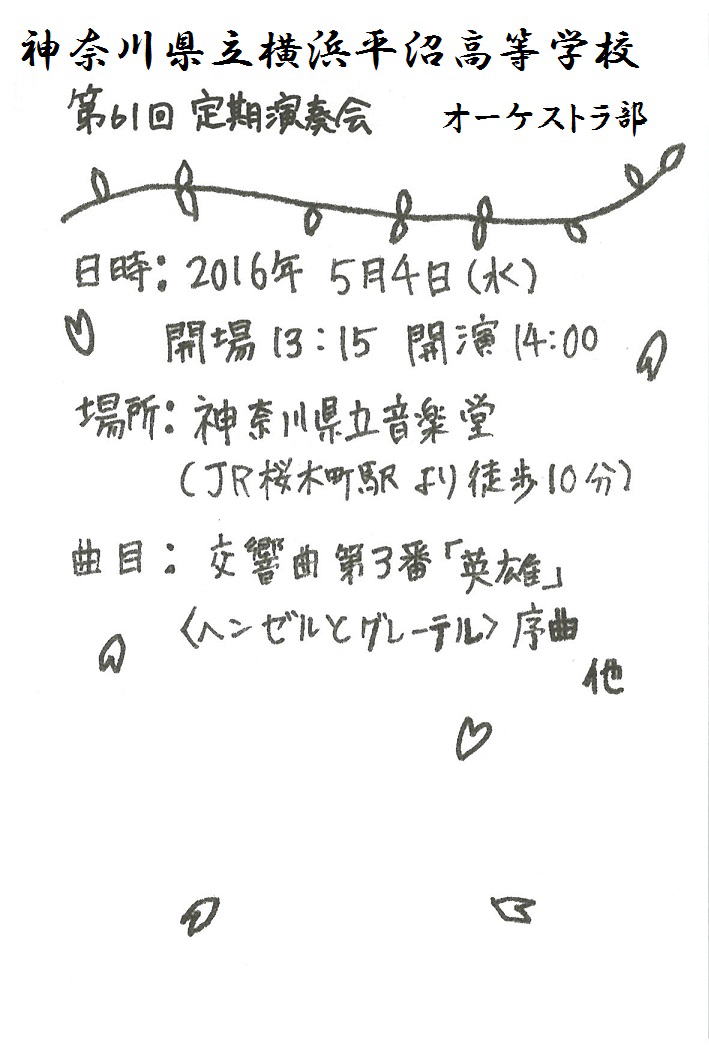 神奈川県立横浜平沼高等学校
第61回 定期演奏会 オーケストラ部
日時: 2016年 5月4日(水)
開場 13:15 開演 14:00
場所: 神奈川県立音楽堂
(JR桜木町駅より徒歩10分)
曲目: 交響曲第3番「英雄」
〈ヘンゼルとグレーテル〉序曲
他